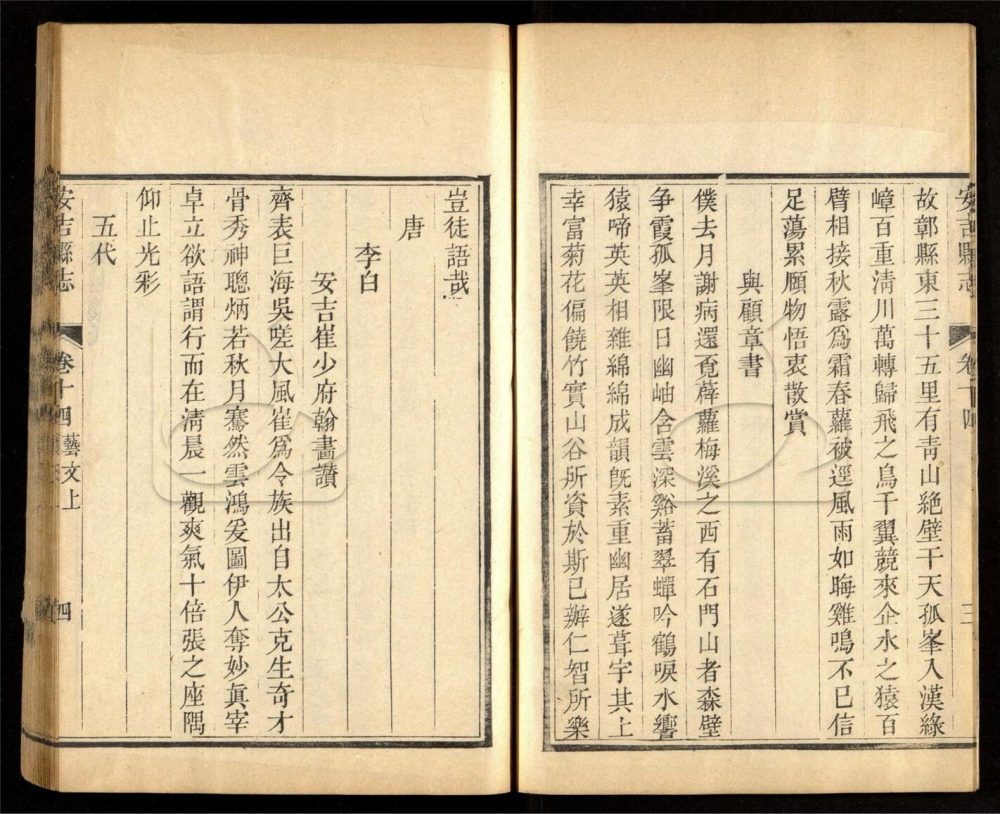 安吉縣志
卷十四
三
故鄣縣東三十五里有靑山絶壁干天孤峯入漢綠
嶂百重淸川萬轉歸飛之鳥千翼競來企水之猿百
臂相接秋露爲霜春蘿被逕風雨如晦雞鳴不已信
足蕩累願物悟衷散賞
與顧章書
僕去月謝病還覔薜蘿梅溪之西有石門山者森壁
争霞孤峯限日幽岫含雲深谿蓄翠蟬吟鶴唳水響
猿啼英英相雜綿綿成韻旣素重幽居遂葺宇其上
幸富菊花偏饒竹實山谷所資於斯已辦仁智所樂
豈徒語哉
唐
李白
安吉崔少府翰畫讃
齊表巨海吳嗟大風崔爲令族出自太公克生奇才
骨秀神聰炳若秋月騫然雲鴻爰圖伊人奪妙眞宰
卓立欲語謂行而在淸晨一觀爽氣十倍張之座隅
仰止光彩
五代
安吉縣志
卷十四藝文上
四